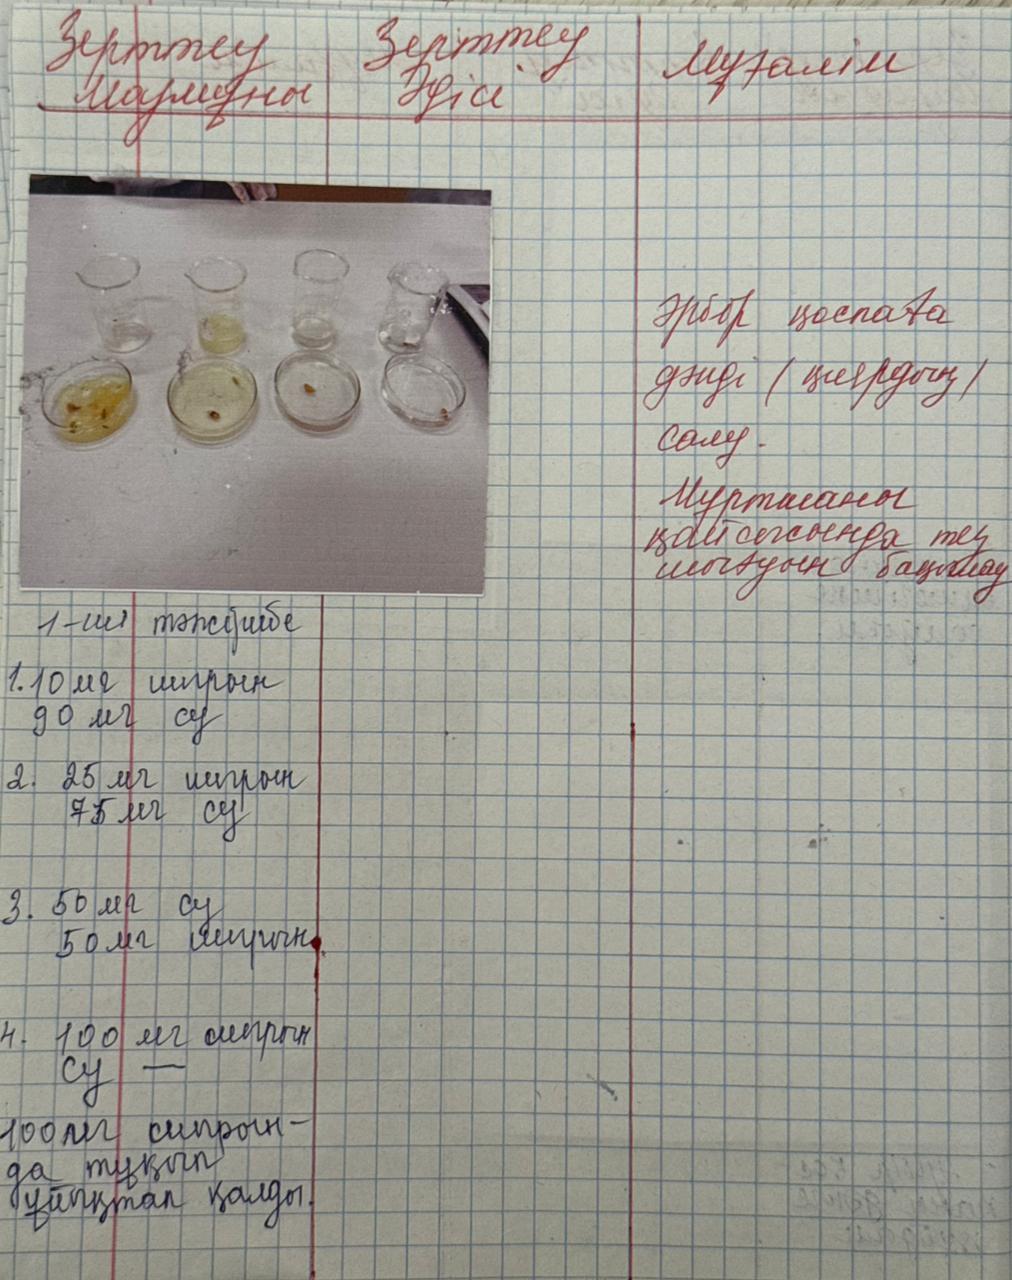 Зерттеу
Мазмұны
Зерттеу
Әдісі
Мұғалім
Әрбір қоспаға
дәнді (қиярдың)
салу.
Мұртшаны
қайсысында тез
шығуын бақылау
1-ші тәжірибе
1. 10 мг шырын
90 мг су
2. 25 мг шырын
75 мг су
3. 50 мг су
50 мг шырын
4. 100 мг шырын
су —
100 мг шырын-
да тұқым
ұйықтап қалды.